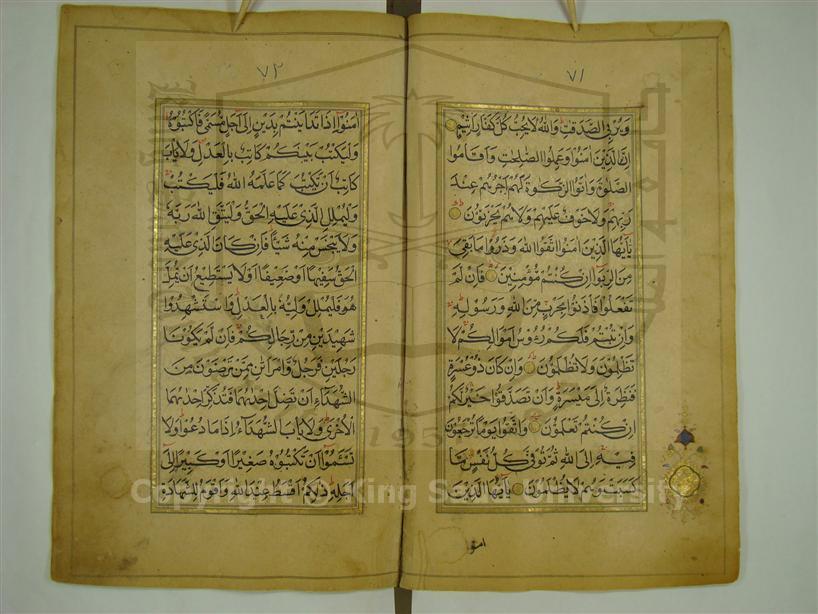 ٧١
ويربي الصدقت والله لا يحب كل كفار اثيم
ان الذين امنوا وعملوا الصلحت واقاموا
الصلوة واتوا الزكوة لهم اجرهم عند
ربهم ولا خوف عليهم ولا هم يحزنون
يايها الذين امنوا اتقوا الله وذروا ما بقي
من الربوا ان كنتم مؤمنين فان لم
تفعلوا فاذنوا بحرب من الله ورسوله
وان تبتم فلكم رءوس اموالكم لا
تظلمون ولا تظلمون وان كان ذو عسرة
فنظرة الى ميسرة وان تصدقوا خير لكم
ان كنتم تعلمون واتقوا يوما ترجعون
فيه الى الله ثم توفى كل نفس ما
كسبت وهم لا يظلمون يايها الذين
امنوا
٧٢
امنوا اذا تداينتم بدين الى اجل مسمى فاكتبوه
وليكتب بينكم كاتب بالعدل ولا ياب
كاتب ان يكتب كما علمه الله فليكتب
وليملل الذي عليه الحق وليتق الله ربه
ولا يبخس منه شيئا فان كان الذي عليه
الحق سفيها او ضعيفا او لا يستطيع ان يمل
هو فليملل وليه بالعدل واستشهدوا
شهيدين من رجالكم فان لم يكونا
رجلين فرجل وامراتن ممن ترضون من
الشهداء ان تضل احدىهما فتذكر احدىهما
الاخرى ولا ياب الشهداء اذا ما دعوا ولا
تسئموا ان تكتبوه صغيرا او كبيرا الى
اجله ذلكم اقسط عند الله واقوم للشهادة
Copyright © King Saud University